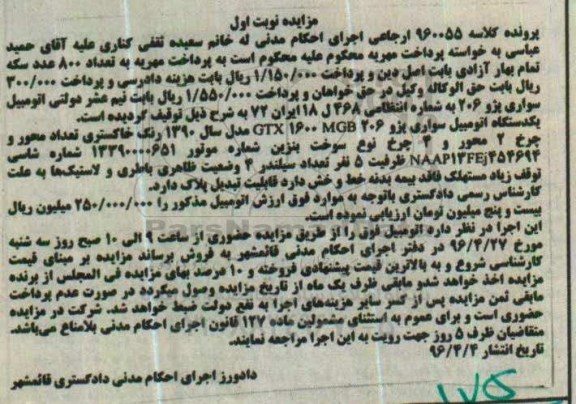 مزایده نوبت اول
پرونده کلاسه ۹۶۰۰۵۵ ارجاعی اجرای احکام مدنی له خانم سعیده ثقفی کناری علیه آقای حمید
عباسی به خواسته پرداخت مهریه محکوم علیه محکوم است به پرداخت مهریه به تعداد ۸۰۰ عدد سکه
تمام بهار آزادی بابت اصل دین و پرداخت ۱/۱۵۰/۰۰۰ ریال بابت هزینه دادرسی و پرداخت ۳۰۰/۰۰۰
ریال بابت حق الوکاله وکیل در حق خواهان و پرداخت ۱/۵۵۰/۰۰۰ ریال بابت نیم عشر دولتی اتومبیل
سواری پژو ۲۰۶ به شماره انتظامی ۴۶۸ ل ۱۸ ایران ۷۲ به شرح ذیل توقیف گردیده است.
یکدستگاه اتومبیل سواری پژو ۲۰۶ GTX ۱۶۰۰ MGB مدل سال ۱۳۹۰ رنگ خاکستری تعداد محور و
چرخ ۲ محور و ۴ چرخ نوع سوخت بنزین شماره موتور ۱۳۳۹۰۰۰۰۶۵۱ شماره شاسی
NAAP۱۳FEj۴۵۴۶۹۴ ظرفیت ۵ نفر تعداد سیلندر ۴ وضعیت ظاهری باطری و لاستیک‌ها به علت
توقف زیاد مستهلک فاقد بیمه بدنه خط و خش دارد قابلیت تبدیل پلاک دارد.
کارشناس رسمی دادگستری باتوجه به موارد فوق ارزش اتومبیل مذکور را ۲۵۰/۰۰۰/۰۰۰ میلیون ریال
بیست و پنج میلیون تومان ارزیابی نموده است.
این اجرا در نظر دارد اتومبیل فوق را از طریق مزایده حضوری از ساعت ۹ الی ۱۰ صبح روز سه شنبه
مورخ ۹۶/۴/۲۷ در دفتر اجرای احکام مدنی قائمشهر به فروش برساند مزایده بر مبنای قیمت
کارشناسی شروع و به بالاترین قیمت پیشنهادی فروخته و ۱۰ درصد بهای مزایده فی المجلس از برنده
مزایده اخذ خواهد شدو مابقی ظرف یک ماه از تاریخ مزایده وصول میکردد در صورت عدم پرداخت
مابقی ثمن مزایده پس از کسر سایر هزینه‌های اجرا به نفع دولت ضبط خواهد شد. شرکت در مزایده
حضوری است و برای عموم به استثنای مشمولین ماده ۱۲۷ قانون اجرای احکام مدنی بلامانع می‌باشد.
متقاضیان ظرف ۵ روز جهت رویت به این اجرا مراجعه نمایند.
تاریخ انتشار ۹۶/۴/۴
دادورز اجرای احکام مدنی دادگستری قائمشهر